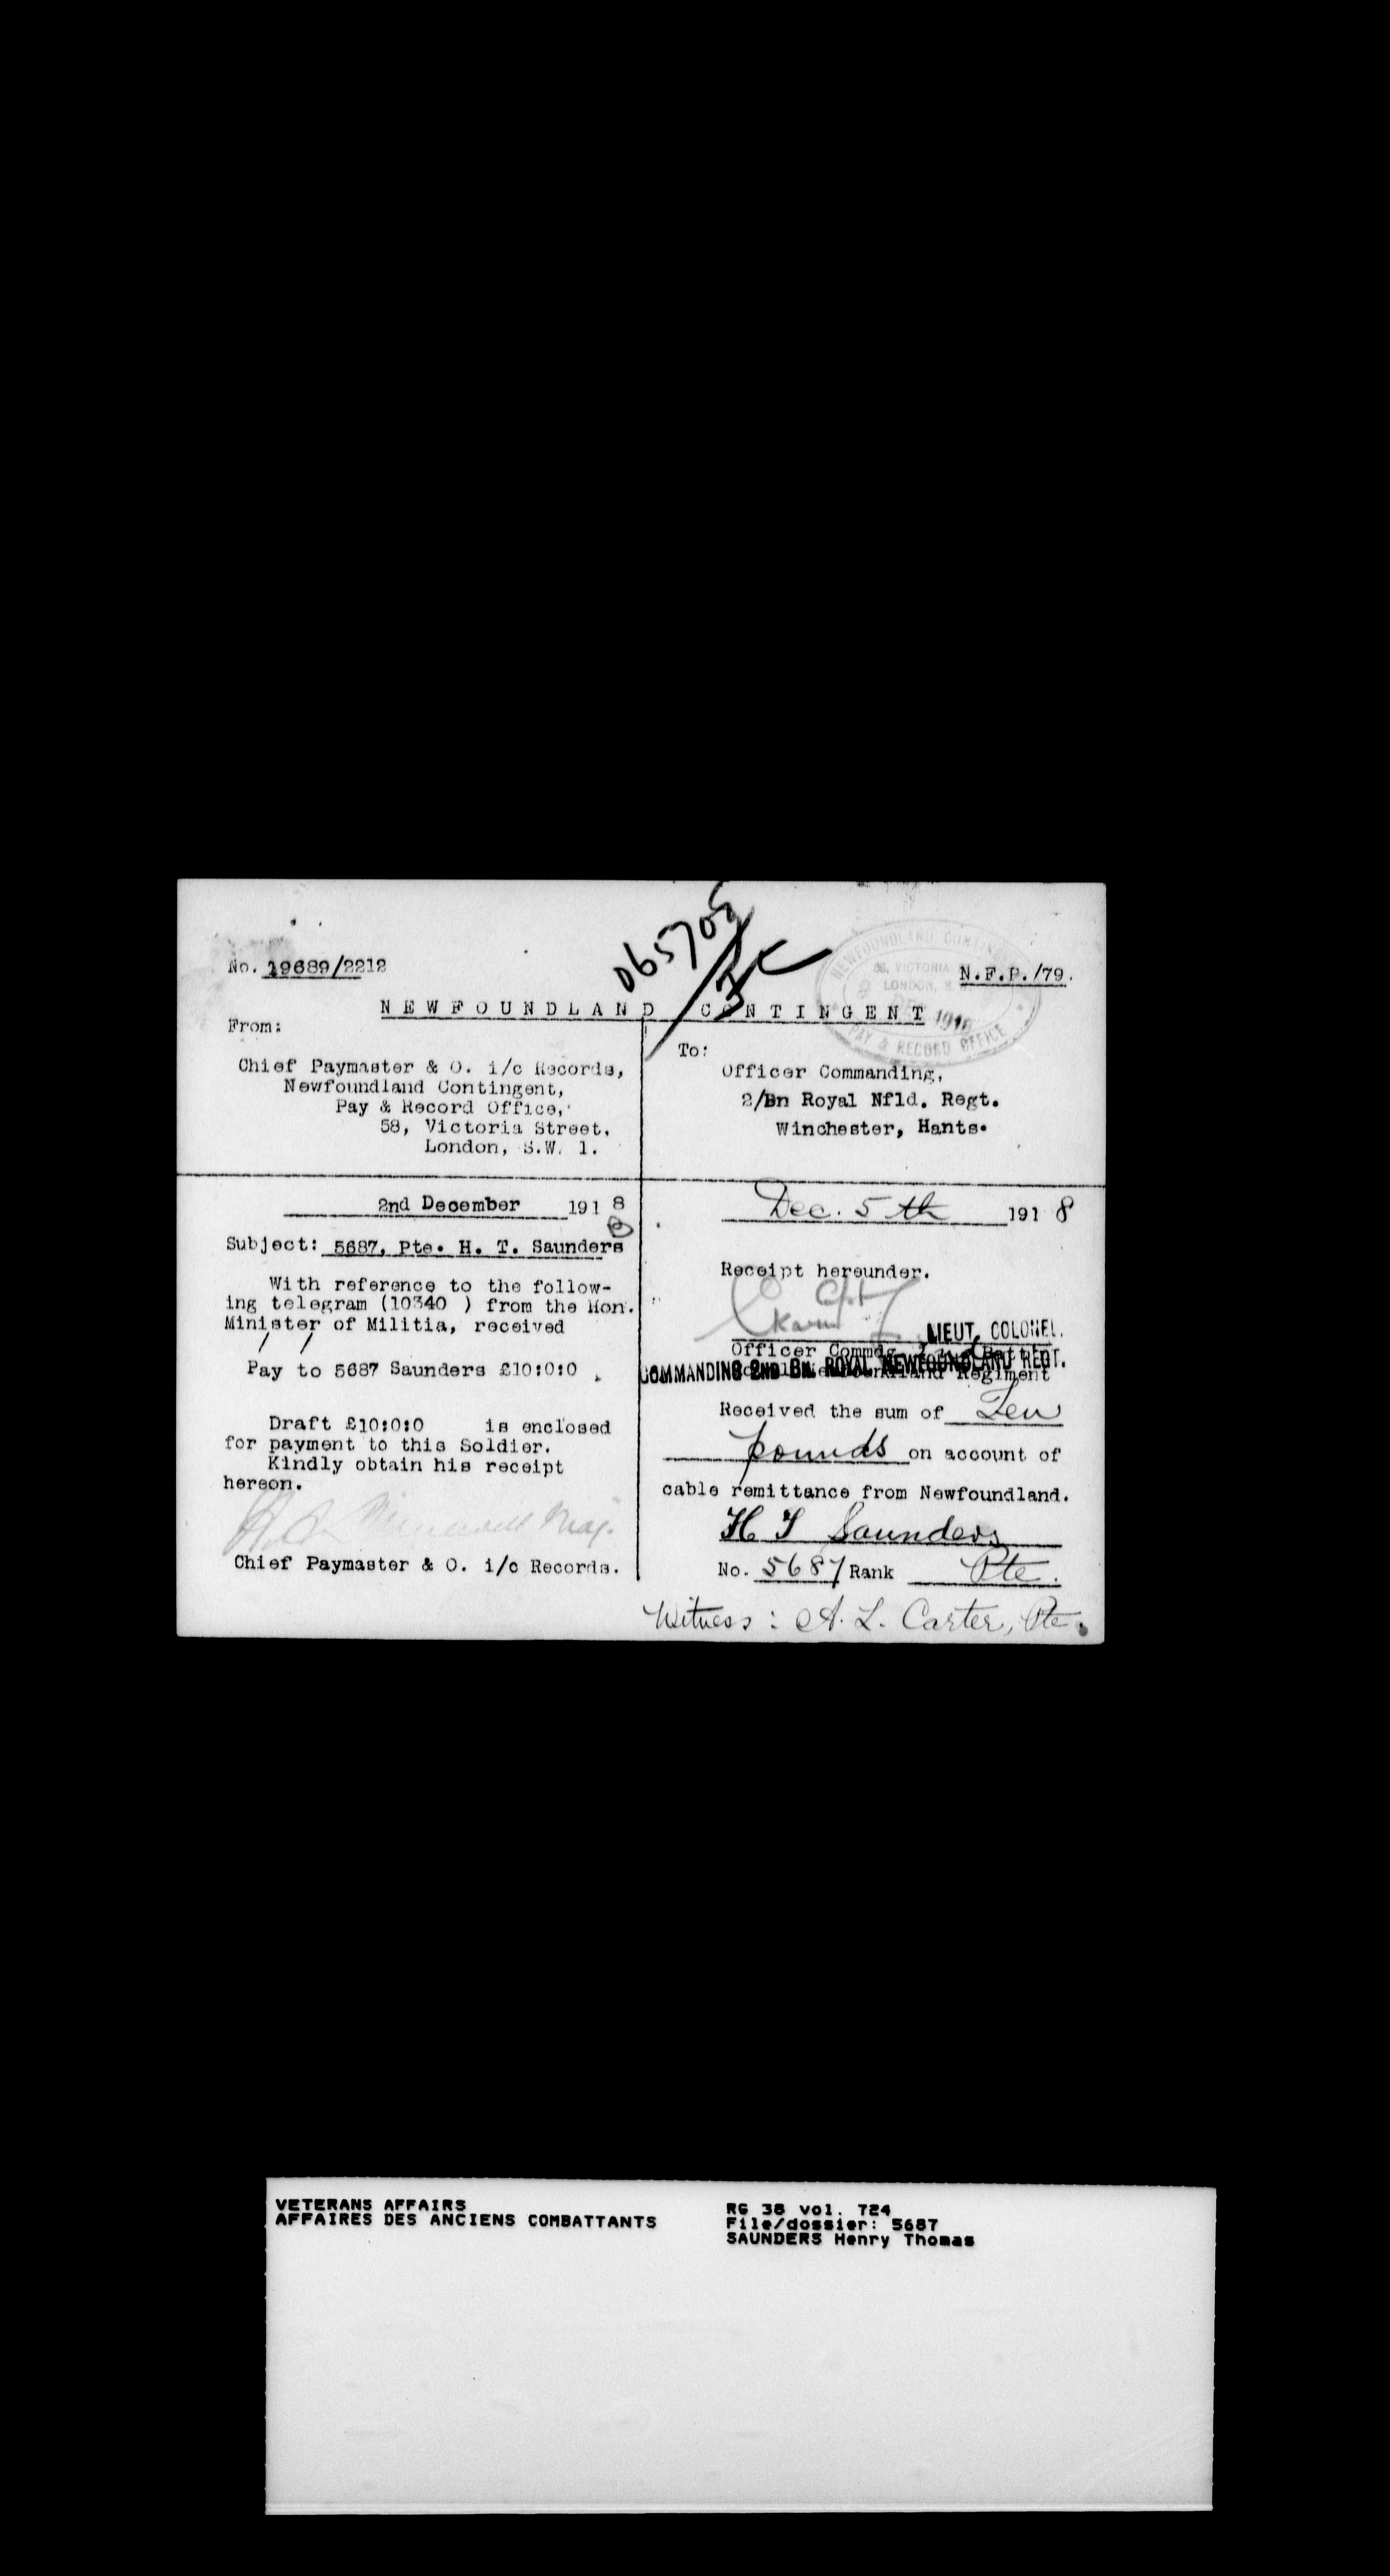 065705
No. 19689/2212
N.F.P./79.
NEWFOUNDLAND CONTINGENT
58, VICTORIA
LONDON, S.W.
DEC 1918
PAY & RECORD OFFICE
NEWFOUNDLAND CONTINGENT
From:
Chief Paymaster & O. i/c Records,
Newfoundland Contingent,
Pay & Record Office,
58, Victoria Street,
London, S.W. 1.
To:
Officer Commanding,
2/Bn Royal Nfld. Regt.
Winchester, Hants.
2nd December 1918
Subject: 5687, Pte. H. T. Saunders
With reference to the follow-
ing telegram (10340 ) from the Hon.
Minister of Militia, received
Pay to 5687 Saunders £10:0:0
Draft £10:0:0 is enclosed
for payment to this Soldier.
Kindly obtain his receipt
hereon.
Chief Paymaster & O. i/c Records.
Dec. 5th 1918
Receipt hereunder.
LIEUT. COLONEL.
Officer Commdg.
COMMANDING 2ND BN. ROYAL NEWFOUNDLAND REGT.
Regiment
Received the sum of Ten
pounds on account of
cable remittance from Newfoundland.
H T Saunders
No. 5687 Rank Pte.
Witness: A. L. Carter, Pte.
VETERANS AFFAIRS
AFFAIRES DES ANCIENS COMBATTANTS
RG 38 vol. 724
File/dossier: 5687
SAUNDERS Henry Thomas